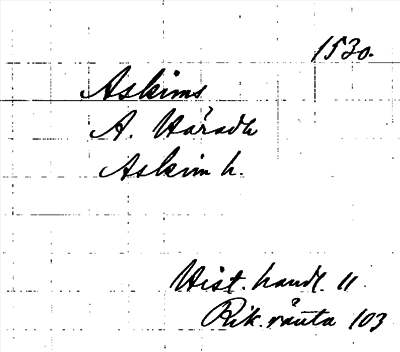 1530.
Askims
A. Häradh
Askim h.
Hist. handl. 11
Rik. ränta 103